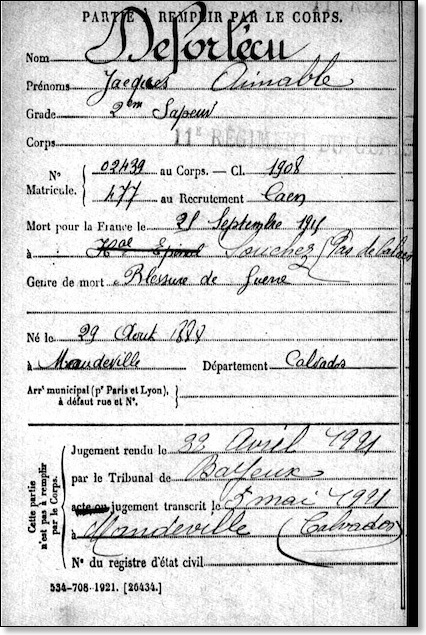 PARTIE À REMPLIR PAR LE CORPS.
Nom Deforlécu
Prénoms Jacques Aimable
Grade 2em Sapeur
Corps 11e RÉGIMENT DU GÉNIE
No Matricule. { 02439 au Corps. — Cl. 1908
477 au Recrutement Caen
Mort pour la France le 25 Septembre 1915
à Souchez (Pas de Calais)
Genre de mort Blessure de Guerre
Né le 29 Aout 1888
à Mandeville Département Calvados
Arrt municipal (pr Paris et Lyon), }
à défaut rue et No.
Cette partie n'est pas à remplir par le Corps. {
Jugement rendu le 22 Avril 1921
par le Tribunal de Bayeux
acte ou jugement transcrit le 5 mai 1921
à Mandeville (Calvados)
No du registre d'état civil
534-708-1921. [26434.]